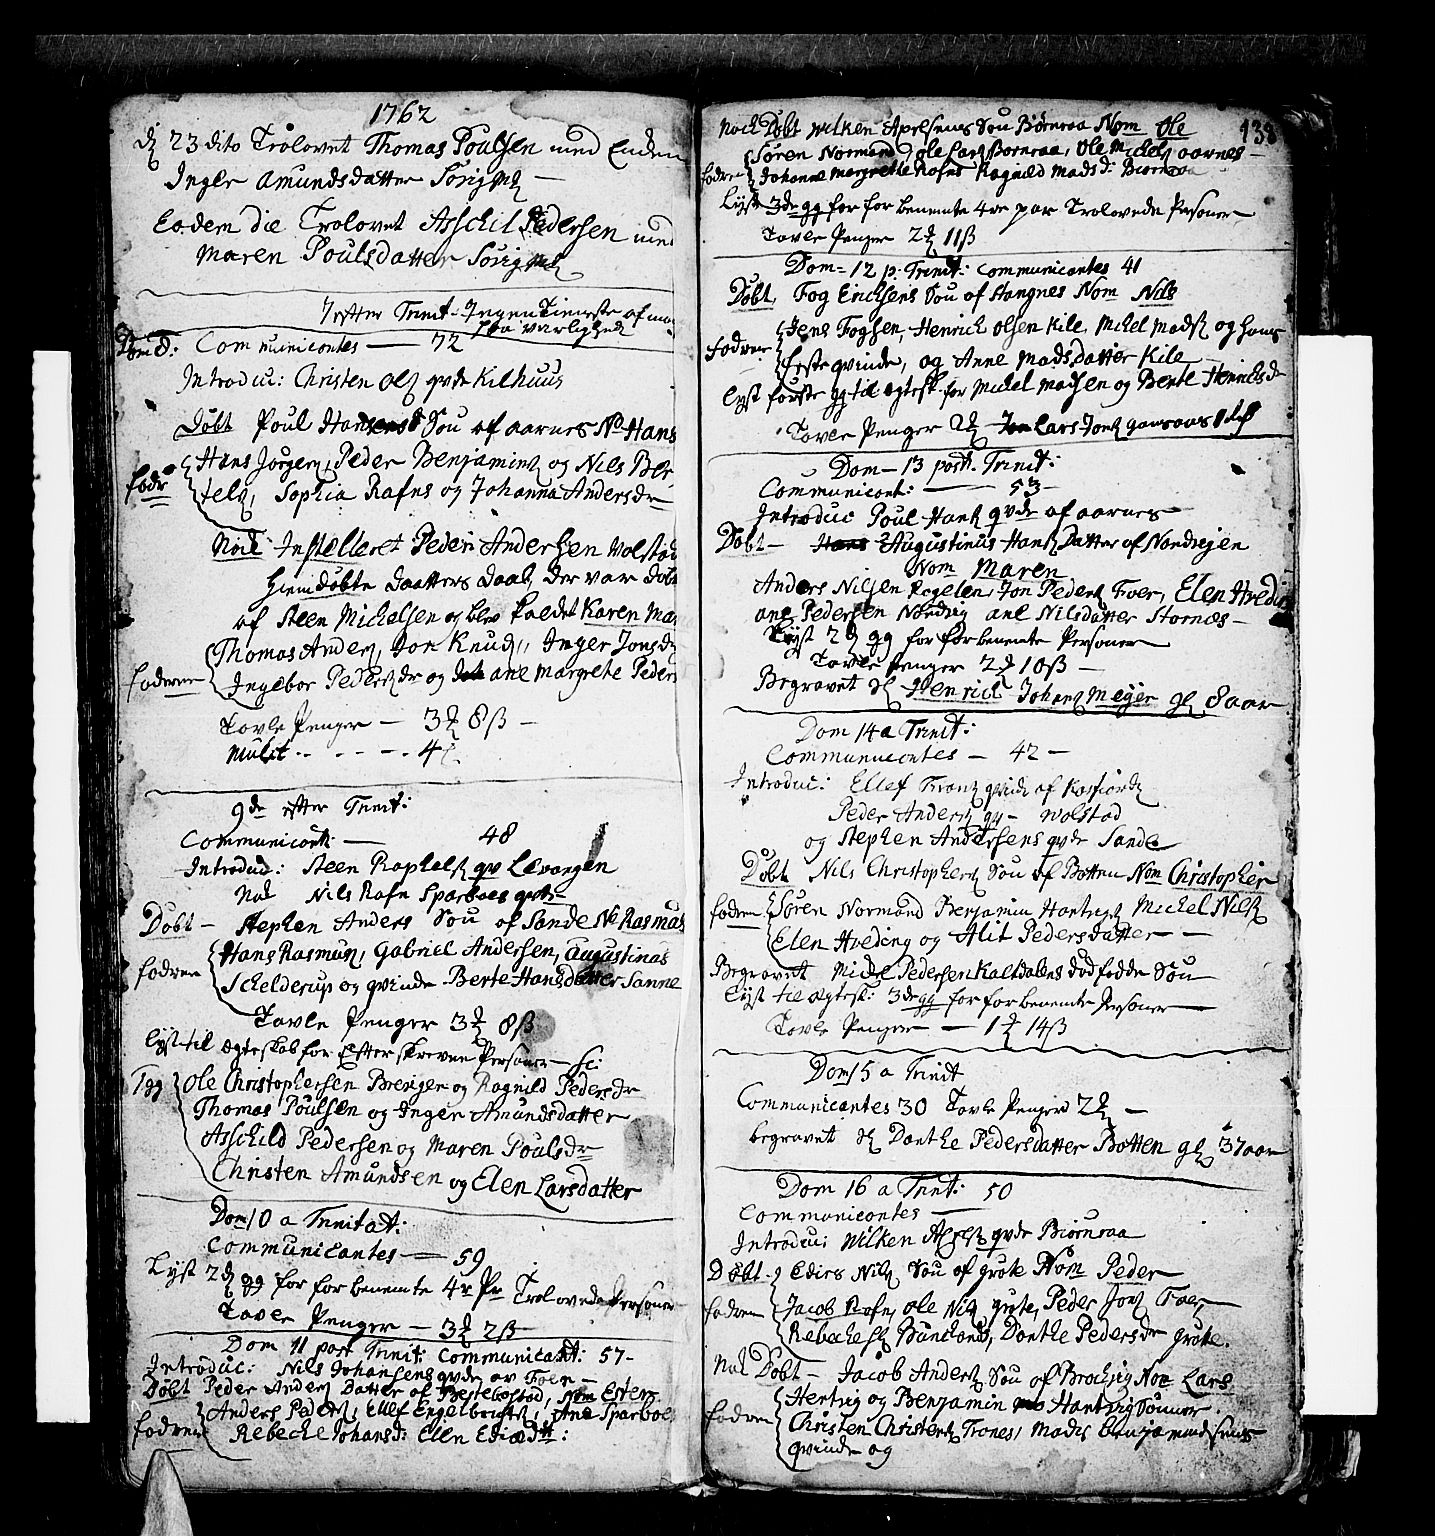 1762
d 23 dito Trolovet Thomas Poulsen med Enden
Inger Amundsdatter
Eodem die Trolovet Asschil Pedersen med
Maren Poulsdatter
7 efter Trinit: Ingen Tieneste af
Dom 8: Communicantes — 72
Introduc: Christen Ols qvde Kilhuus
Døbt Poul Hansens Sou af aarnes No Hans
fodr Hans Jørgens, Peder Benjamins og Nils Ber
tels, Sophia Rafns og Johanna Andersdr
Nock Instelleret Peder Andersen Wolstad
Hiemdøbte daatters daab, der var døbt
af Steen Michelsen og blev kaldet Karen Mar
Thomas Anders, Jon Knuds, Inger Jonsd
fodrene Ingebor Pedersdr og ane Margrete Peders
Tavle Penger — 3 8ß —
Mulct - - - - 4
9de efter Trinit:
Communicant: — 48
Introduc: Steen Raphels qv Levangen
Nock Nils Rafn Sparboes qvde
Døbt — Stephen Anders Sou af Sande No Rasmus
Hans Rasmus, Gabriel Andersen, Augustinus
fodrene Schelderup og qvinde Berte Hansdatter Sanne
Tavle Penger 3 8ß
lyst til ægteskab for Efterskrevne Personer — sc:
1 gg Ole Christophersen Breriger og Ragnild Pedersdr
Thomas Poulsen og Inger Amundsdatter
Asschild Pedersen og Maren Poulsdr
Christen Amundsen og Elen Larsdatter
Dom 10 a Trinitat:
Communicantes — 59
Lyst 2d gg for forbenemte 4r Pr Trolovede Personer
Tavle Penger — 3 2ß
Dom 11 post Trinit: Communicant: 57 —
Introduc: Nils Johansens qvde av Foer —
Døbt Peder Anders Datter af Nom Ester
Anders Peders, Ellef Engelbrichts, Ane Sparboe
fodrene Rebecke Johansd: Elen
138
Nock Døbt Wilken Apelsens Sou Biørnraa Nom Ole
Søren Normand, Ole Lars Bornraa, Ole Michels aarnes —
fodrene Johanne Margrethe Rafns Ragnild Madsd: Biørnraa
Lyst 3de gg for forbenemte 4re par Trolovede Personer
Tavle Penger 2 11ß
Dom — 12 p: Trinit: Communicantes 41
Døbt, Fog Erichsens Sou af Hangnes Nom Nils
Jens Fogsen, Henrich Olsen Kile, Michel Mads og hans
fodrene feste qvinde, og Anne Madsdatter Kile —
lyst første gg til ægtesk: for Michel Madsen og Berte Henrichsdr
Tavle Penger 2 Lars Jons
Dom — 13 post. Trinit:
Communicant: — 53 —
Introduc Poul Hans qvde af aarnes —
Døbt — Augustinus Hans Datter af Nordrejen
Nom Maren
Anders Nilsen Rogelen, Jon Peders Foer, Elen Hveding
ane Pedersen ane Nilsdatter Stornæs —
Lyst 2d gg for forbenemte Personer
Tavle Penger 2 10ß —
Begravet Henrich Johans Meyer gl 8 aar
Dom 14 a Trinit:
Communicantes — 42 —
Introduc: Ellef Frants qvinde af Kasfiord
Peder Anders qv — Wolstad
og Stephen Andersens qvde Sande
Døbt Nils Christophers Sou af Botten Nom Christopher
fodrene Søren Normand Benjamin Hartvigs Michel Nils
Elen Hveding og Alit Pedersdatter — —
Begravet Michel Pedersen Kaltdalens dødfødde Sou
Lyst til ægtesk: 3de gg for forbenemte Personer —
Tavle Penger — 1 14ß
Dom 15 a Trinit
Communicantes 30 Tavle Penger 2 —
begravet Dorthe Pedersdatter Botten gl 37 aar
Dom 16 a Trinit: 50
Communicantes —
Introduc: Wilken Apels qvde Biørnraa
Døbt Edics Nils Sou af grøte Nom Peder
fodrene Jacob Rafn, Ole Nils grøte, Peder Jons Foer,
Rebecke Dorthe Pedersdr grøte.
Nock Døbt — Jacob Anders Sou af Nom Lars
Hertvig og Benjamin Hartvigsønner.
fodrene Christen Christens Trones, Mads Benjamindsens
qvinde og